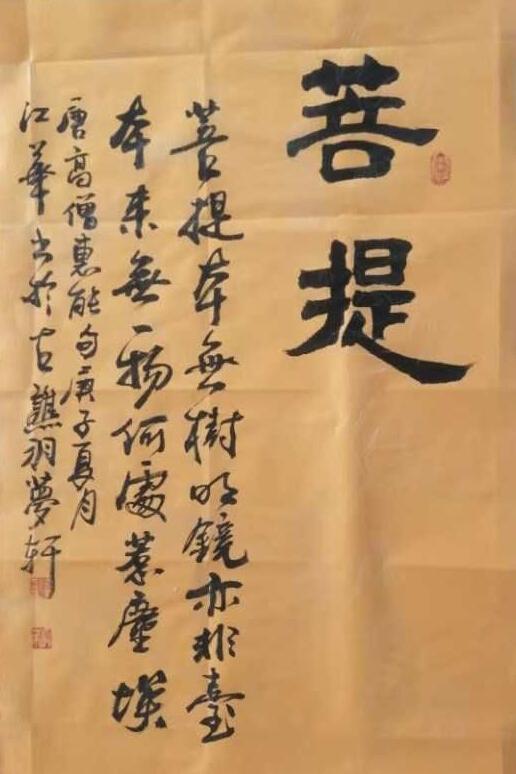 菩提
菩提本無樹明鏡亦非臺
本来無一物何處惹塵埃
唐高僧惠能句庚子夏月
江華书於古譙羽夢轩